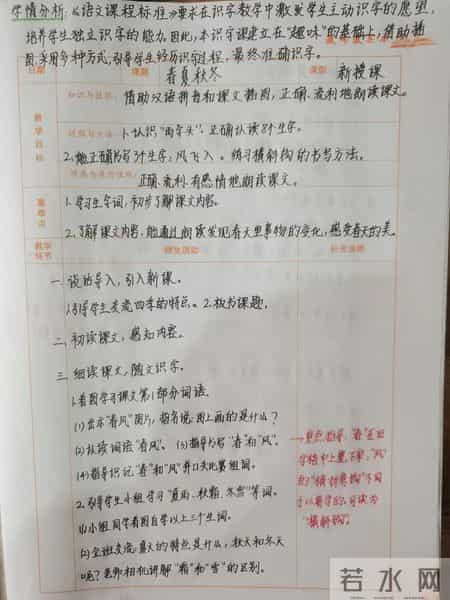 学情分析《语文课程标准》要求在识字教学中激发学生主动识字的愿望,
培养学生独立识字的能力。因此,本识字课建立在"趣味"的基础上,借助插
图,采用多种方式,引导学生经历识字过程,最终准确识字。
日期 课题 春夏秋冬 课型 新授课
教学目标
知识与技能: 借助汉语拼音和课文插图,正确、流利地朗读课文。
过程与方法: 1、认识"雨字头",正确认读8个生字。
2、能正确书写3个生字,风、飞、入。练习横斜钩的书写方法。
正确、流利、有感情地朗读课文。
重难点
1、学习生字词,初步了解课文内容。
2、了解课文内容,能通过朗读发现春天里事物的变化,感受春天的美。
教学环节 师生活动 补充完善
一、谈话导入,引入新课。
1、引导学生交流四季的特点。2、板书课题。
二、初读课文,感知内容。
三、细读课文,随文识字。
1、看图学习课文第1部分词语。
(1)出示"春风"图片,指名说:图上画的是什么?
(2)认读词语"春风"。(3)指导书写"春"和"风"。
(4)指导识记"春"和"风"并口头扩词组词。
2、引导学生小组学习"夏雨、秋霜、冬雪"等词。
(1)小组同学看图自学以上三个生词。
(2)全班交流:夏天的特点是什么,秋天和冬天
呢?老师相机讲解"霜"和"雪"的区别。
重点指导:"春"在田
字格中上紧下松,"风"
的"横斜钩"不同
"横斜钩"。
若水网